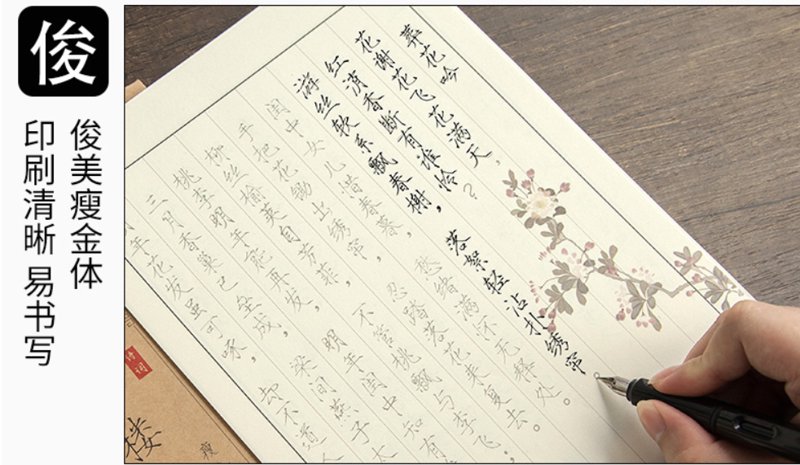 俊
俊美瘦金体
印刷清晰 易书写
葬花吟
花谢花飞花满天，
红消香断有谁怜？
游丝软系飘春榭，落絮轻沾扑绣帘
闺中女儿惜春暮，愁绪满怀无释处。
手把花锄出绣帘，忍踏落花来复去。
柳丝榆荚自芳菲，不管桃飘与李飞，
桃李明年能再发，明年闺中知有
三月香巢已垒成，梁间燕子太
年花发虽可啄，却不道人
诗词
楼
瘦